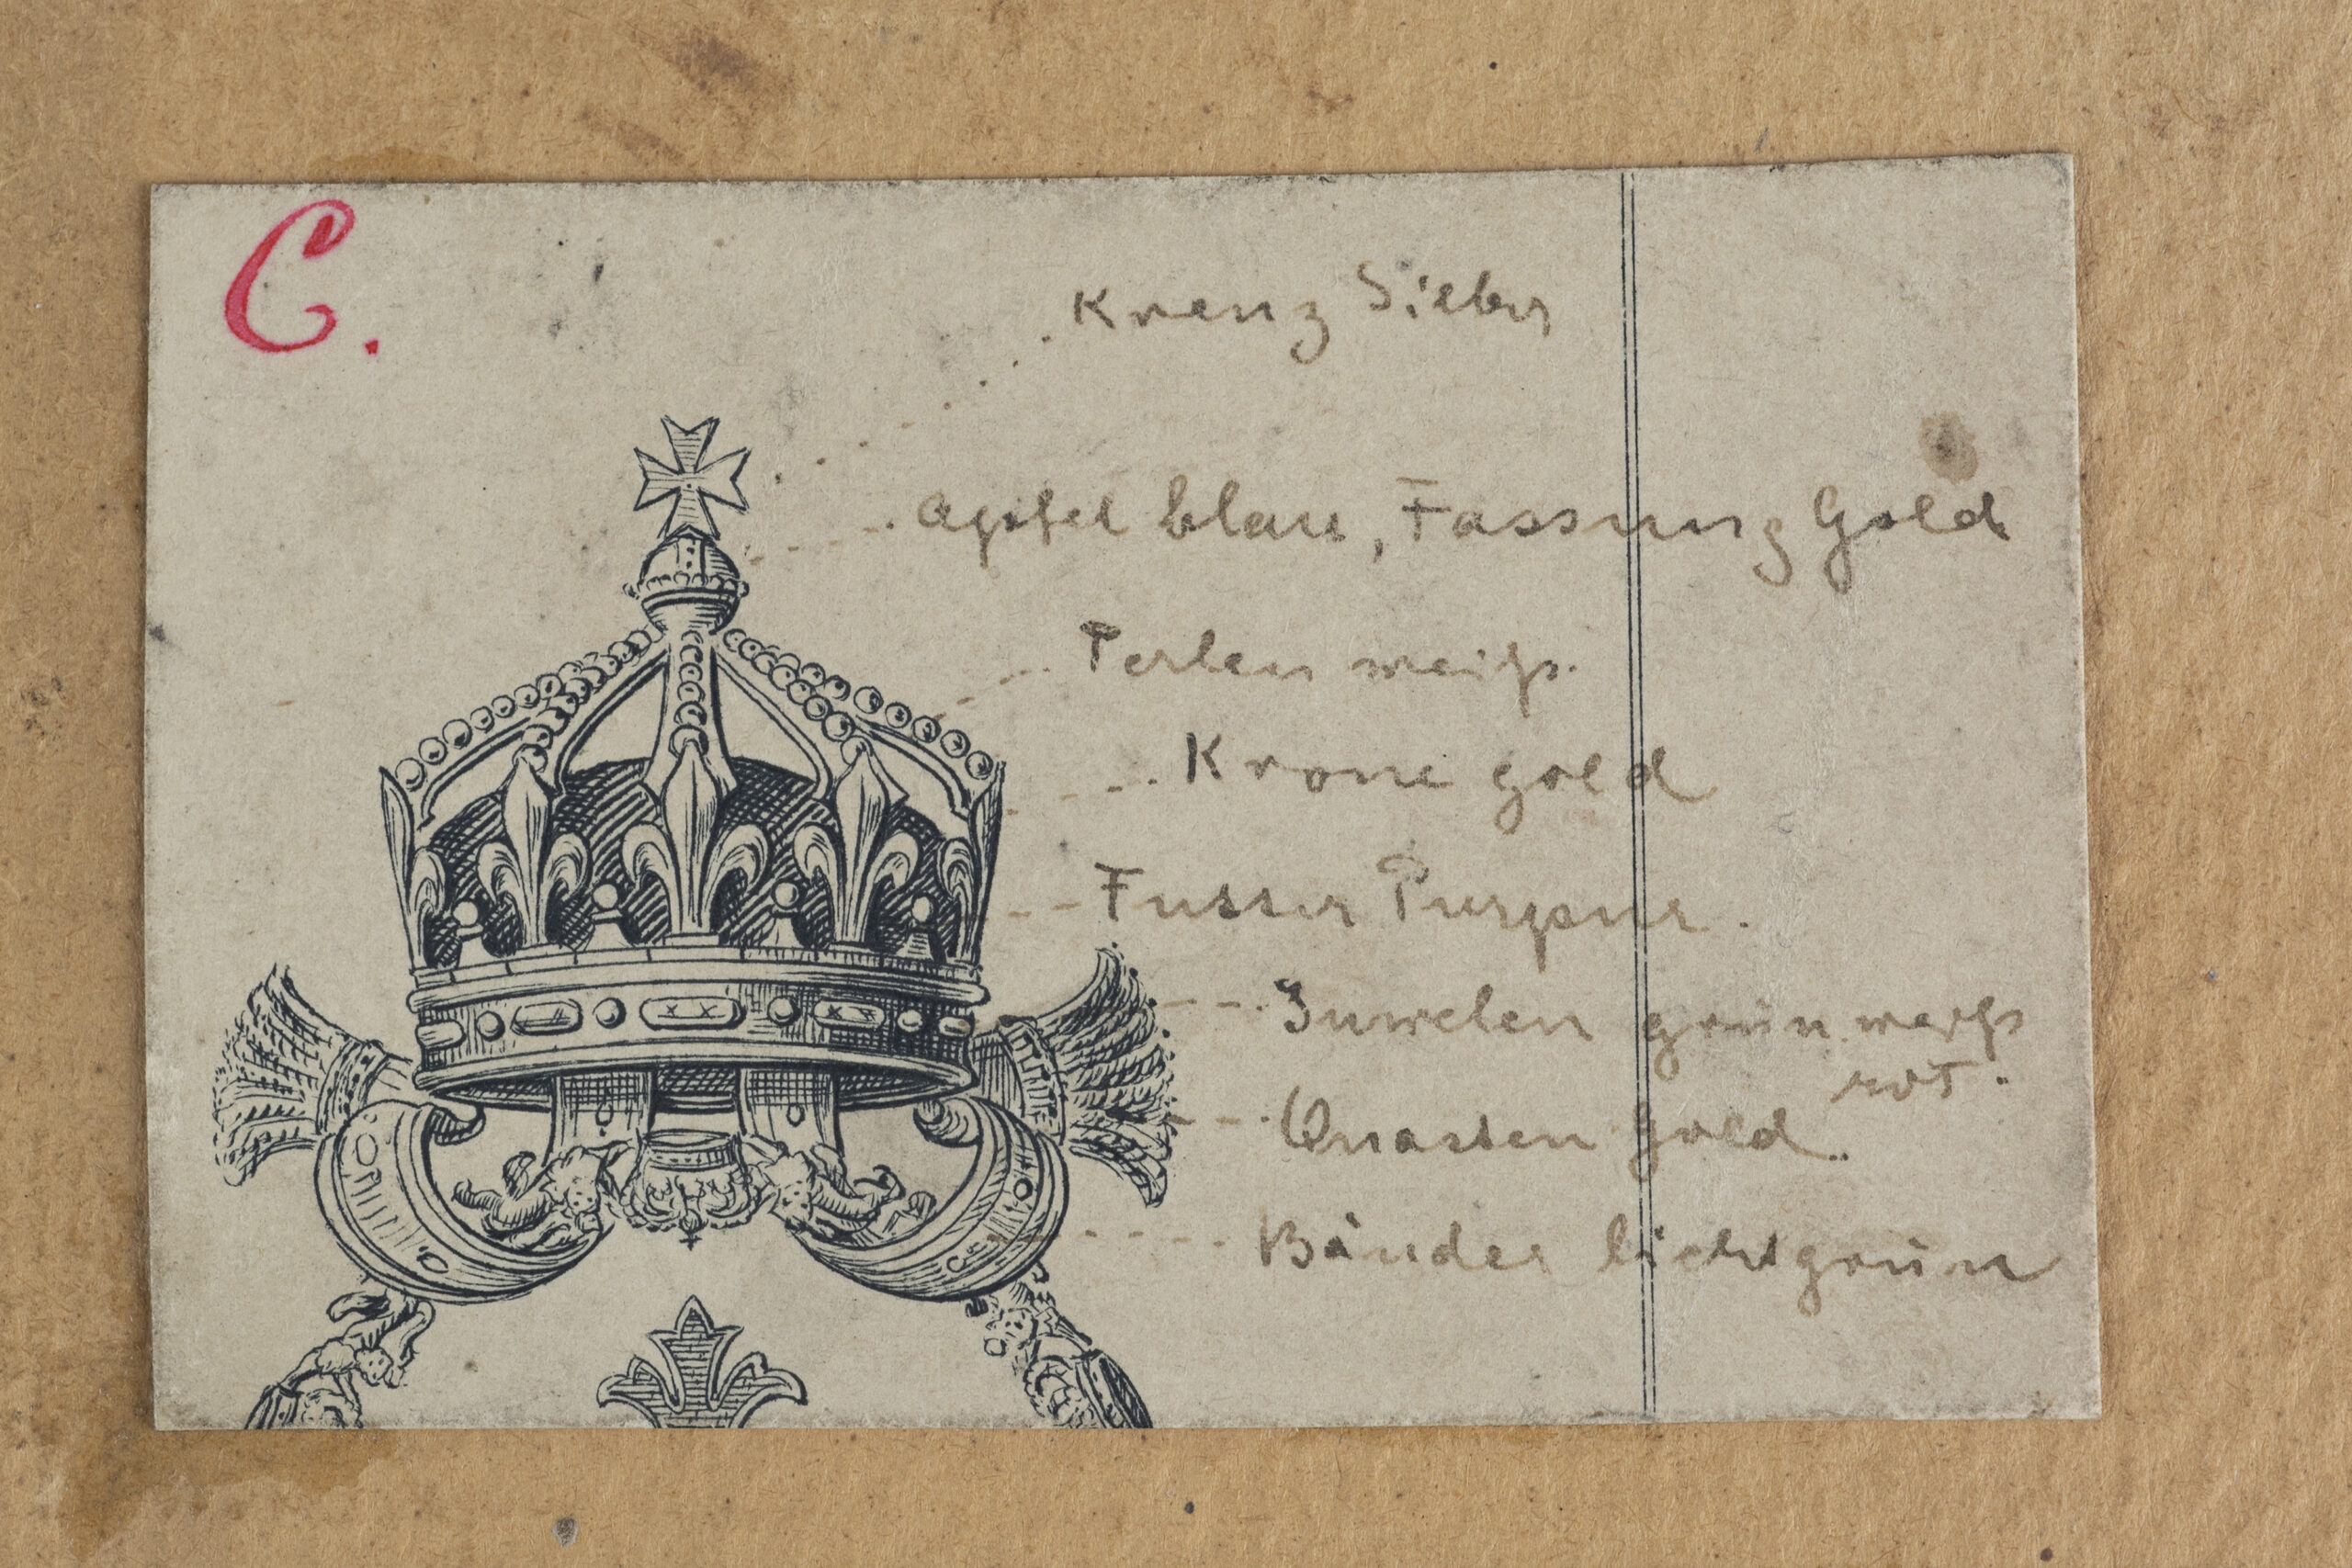 C.
Kreuz Silber
Apfel blau, Fassung Gold
Perlen weiß.
Krone gold
Futter Purpur.
Juwelen grün weiß
rot.
Quasten gold.
Bänder lichtgrün